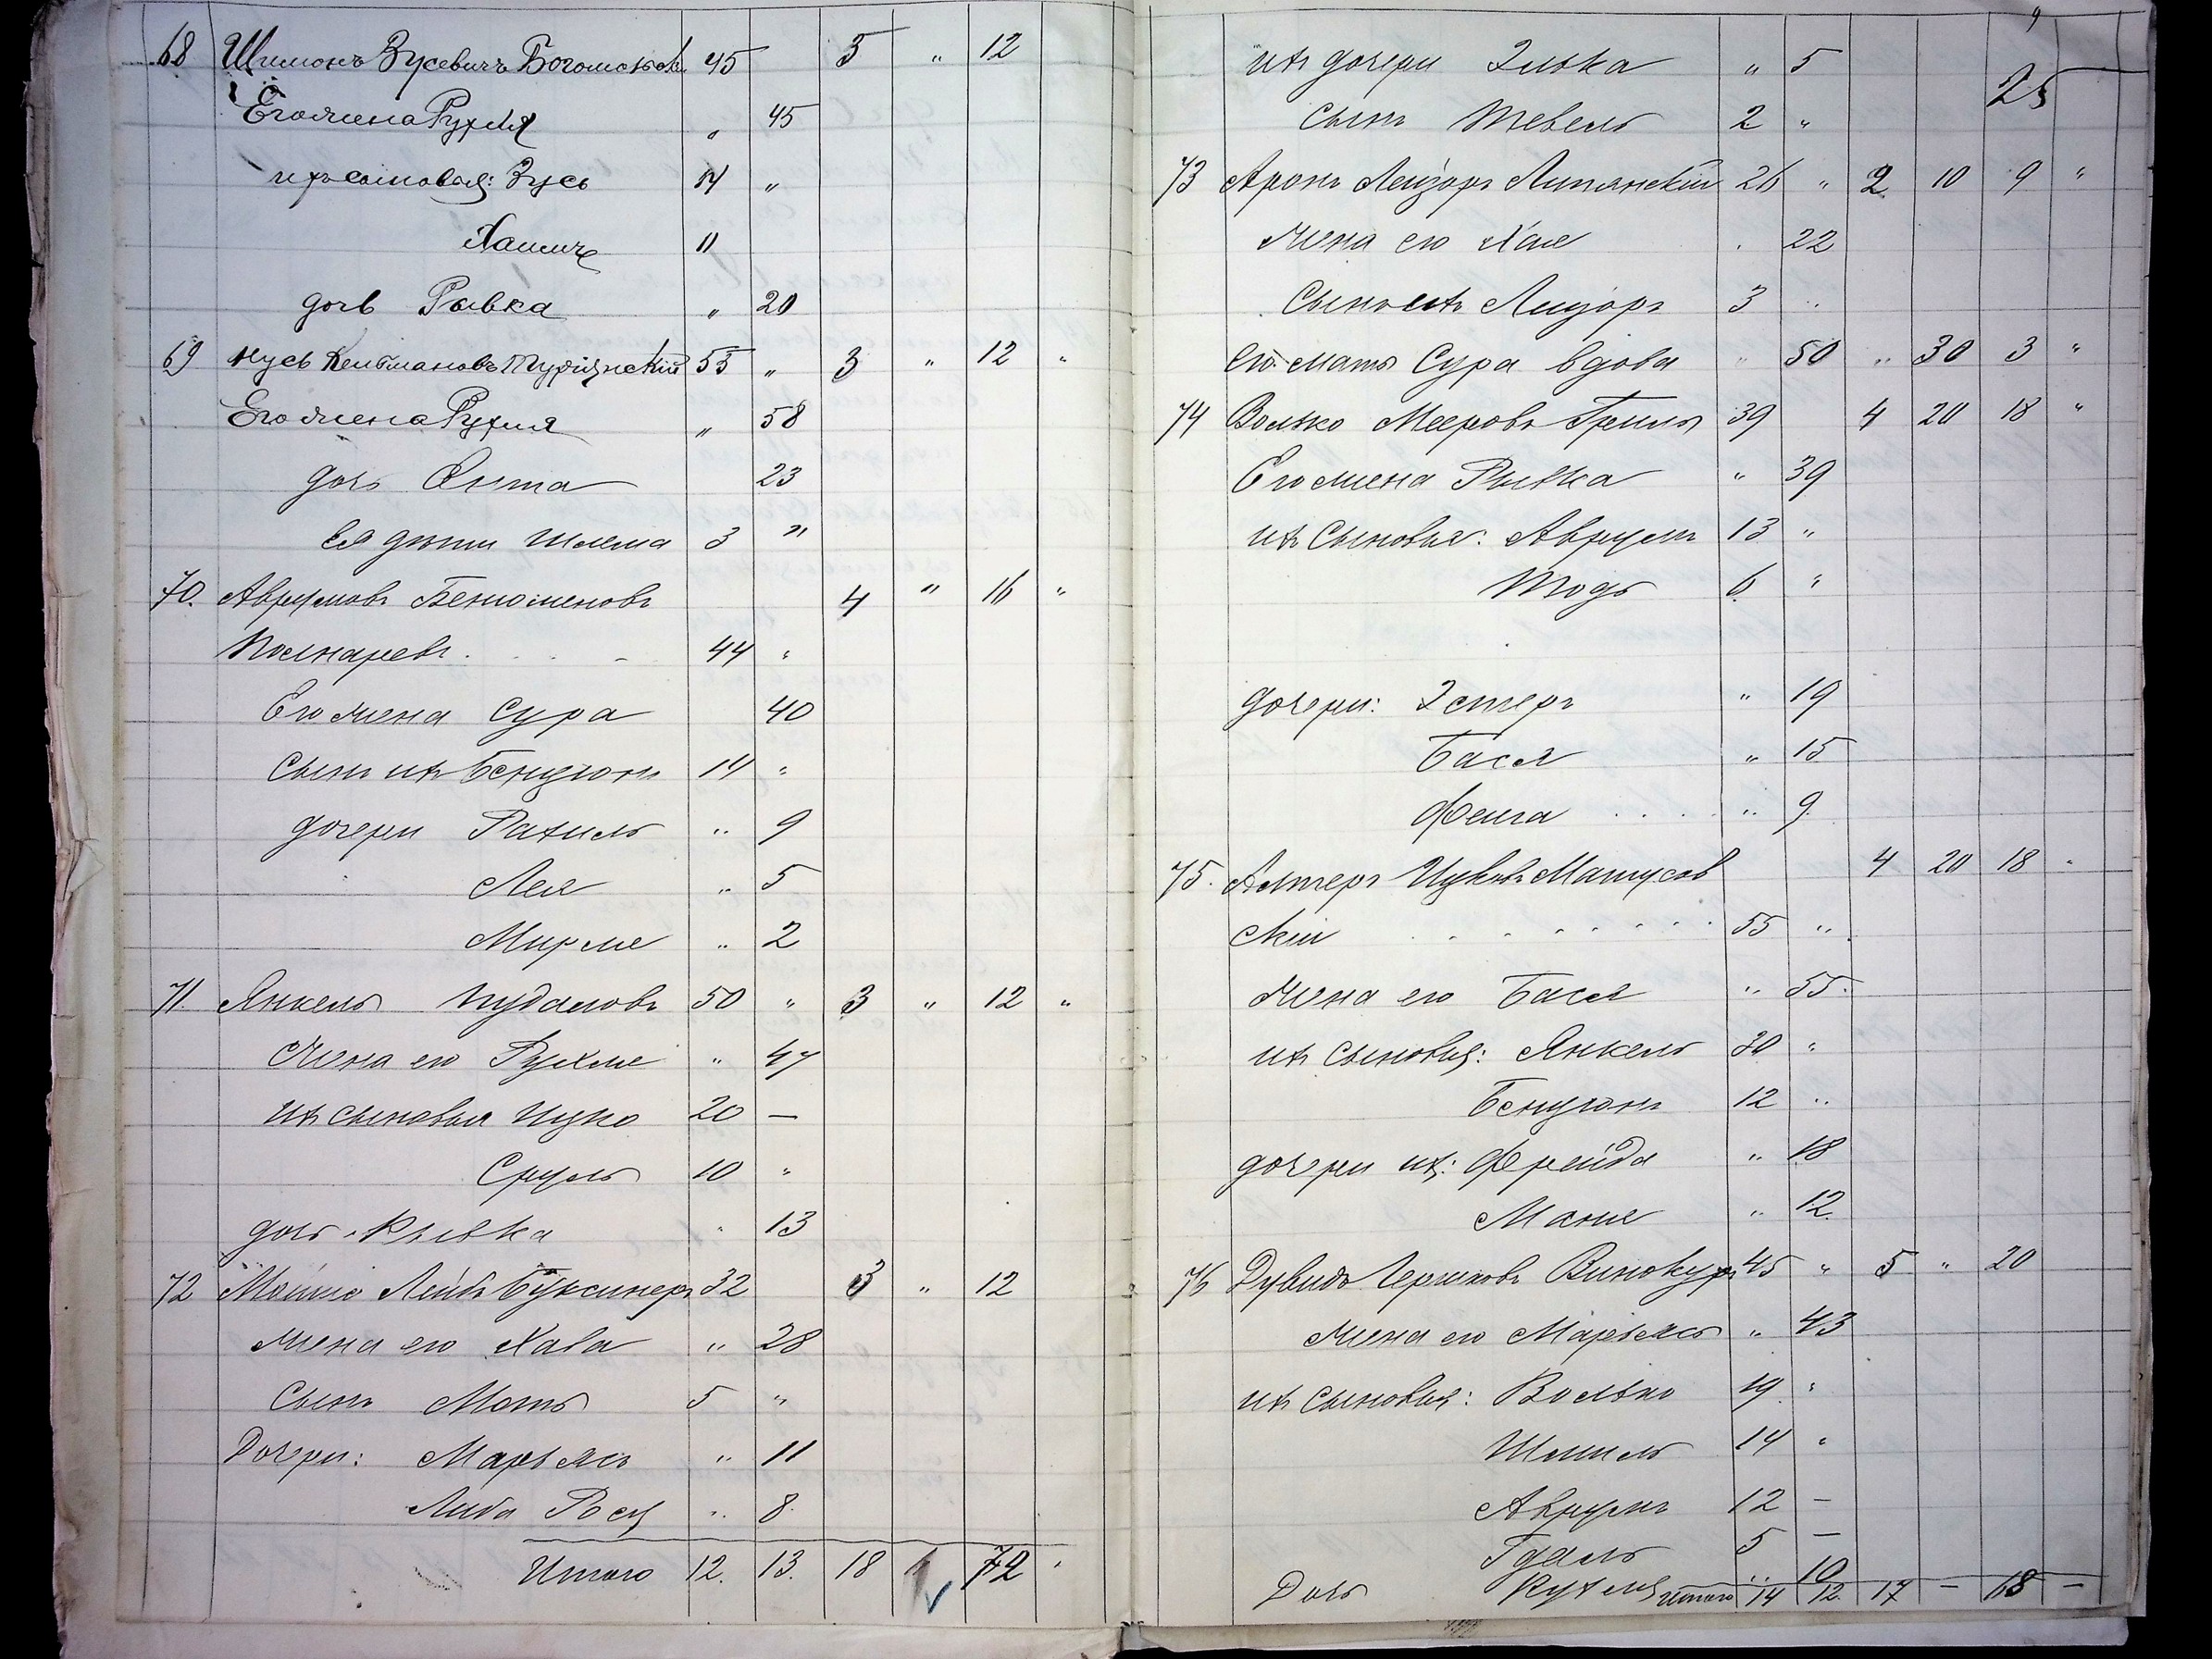 68 Шимонъ Зусевичъ 45 5 „ 12
Его жена Рухля „ 45
ихъ сыновья: Зусь 14 „
Хаимъ 11
дочь Рывка „ 20
69 Нусь 55 „ 3 „ 12 „
Его жена Рухля „ 58
дочь 23
Ея дети Шлема 3 „
70. Аврумовъ 4 „ 16 „
44 „
Его жена Сура 40
Сынъ ихъ Бенціонъ 14 „
дочери Рахиль „ 9
Лея „ 5
Мирле „ 2
71. Янкель 50 „ 3 „ 12 „
Жена его Рухле „ 47
ихъ сыновья Ицко 20 —
Сруль 10 „
дочь Рывка „ 13
72 Мошко Лейб. Буксинеръ 32 3 „ 12
жена его Хава „ 28
Сынъ Моть 5 „
Дочери: Марьясъ „ 11
Либа Рося „ 8
Итого 12. 13. 18 72
9
25
ихъ дочери Злотка „ 5
Сынъ Тевель 2 „
73 Аронъ Лейзоръ Липянскій 26 „ 2 10 9 „
жена его Хая . 22
Сынъ ихъ Лейзоръ 3 „
Его мать Сура вдова „ 50 „ 30 3 „
74 Волько Мееровъ 39 4 20 18 „
Его жена Рывка „ 39
ихъ Сыновья: Аврумъ 13 „
Тодь 6 „
дочери: Эстеръ „ 19
Бася „ 15
Фейга „ 9
75. Алтеръ Ицковъ Матусов 4 20 18 „
скій 55 „
жена его Бася „ 55
ихъ сыновья: Янкель 30 „
Бенціонъ 12 „
дочери ихъ: Фрейда „ 18
Маня „ 12.
76 Дувидъ Гершковъ Винокуръ 45 „ 5 „ 20
жена его Марьясъ „ 43
ихъ сыновья: Волько 19 „
Шмиль 14 „
Аврумъ 12 —
Гдаль 5 —
Дочь Рухля „ 10
итого 14 12. 17 — 68 —